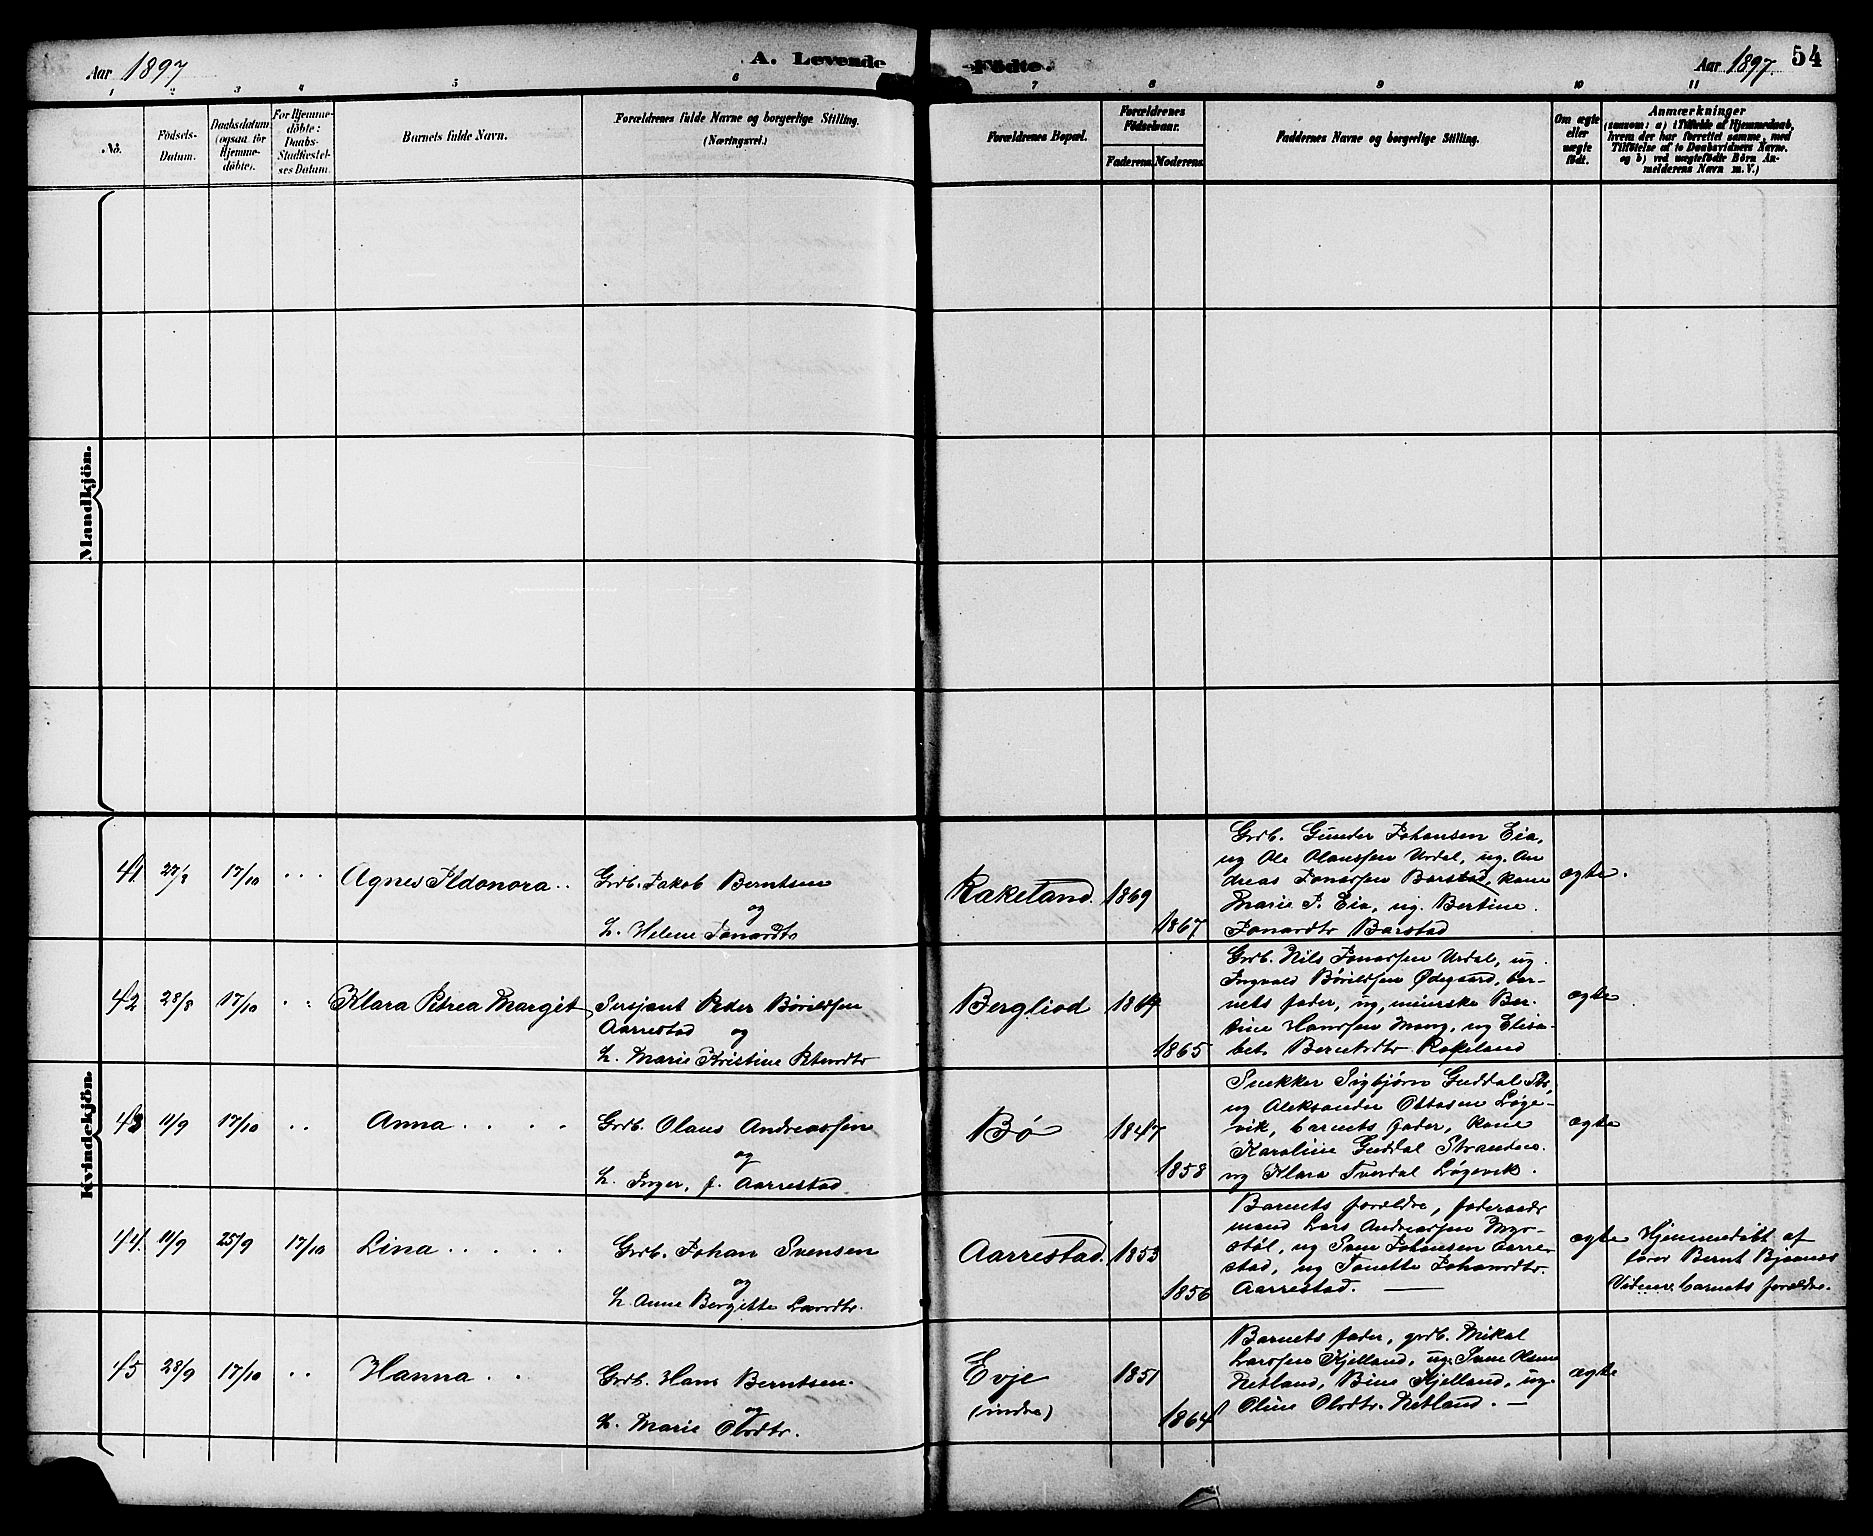 Aar 1897
A. Levende Födte.
Aar 1897.
54
1 2 3 4 5 6 7 8 9 10 11
No.
Födsels-
Datum.
Daabsdatum
(ogsaa for
Hjemme-
döbte).
For Hjemme-
döbte:
Daabs-
Stadfæstel-
ses Datum.
Barnets fulde Navn.
Forældrenes fulde Navne og borgerlige Stilling.
(Næringsvei.)
Forældrenes Bopæl.
Forældrenes
Födselsaar.
Faderens. Moderens.
Faddernes Navne og borgerlige Stilling.
Om ægte
eller
uægte
födt.
Anmærkninger
(saasom: a) i Tilfælde af Hjemmedaab,
hvem der har forrettet samme, med
Tilföielse af to Daabsvidners Navne.
og b) ved uægtefödte Börn An-
melderens Navn m. V.)
Mandkjön.
Kvindekjön.
41 27/8 17/10 Agnes Ildonora
Grdb. Jakob Berntsen
og
H. Helene Jonasdtr
Rakeland. 1869
1867
Grdb. Gunder Johansen Eia,
ug Ole Olaussen Urdal, ug. An
dreas Jonassen Barstad, kone
Marie J. Eia, ug. Bertine
Jonasdtr Barstad
ægte.
42 28/8 17/10 Klara Petrea Margit
Sersjant Peder Börildsen
Aarrestad og
H. Marie Kristine
Bergliod
1865
Grdb. Nils Jonassen Urdal, ug.
Ingvald Börildsen Ødegaard, bar-
nets fader, ug,
Hanssen Mong, ug Elisa-
bet Berntsdtr Rakeland
ægte
43 11/9 17/10 Anna
Grdb. Olaus Andreassen
og
H. Inger, f. Aarrestad
Bø 1847
1858
Snekker Sigbjørn Guddal Str,
ug Aleksander Ottosen Løge-
vik, barnets fader, kone
Karoline Guddal Stranden.
ug Klara Tverdal Løgevik.
ægte
44. 11/9 25/9 17/10 Lina
Grdb. Johan Svensen
og
H. Anne Bergitte Larsdtr.
Aarrestad. 1853
1856
Barnets forældre, føderaads
mand Lars Andreassen Myr-
støl, ug Sven Johansen Aarre-
stad, ug Tonette Johansdtr.
Aarrestad.
ægte
Hjemmedøbt af
lærer Bernt Bjaanes
Vidner: barnets forældre.
45 28/9 17/10 Hanna
Grdb. Hans Berntsen.
og
H. Marie Olsdtr.
Evje
(indre)
1851
1864
Barnets fader, grdb. Mikal
Larssen Kjelland, ug. Sven Olsen
Netland, Bine Kjelland, ug.
Oline Olsdtr. Netland.
ægte